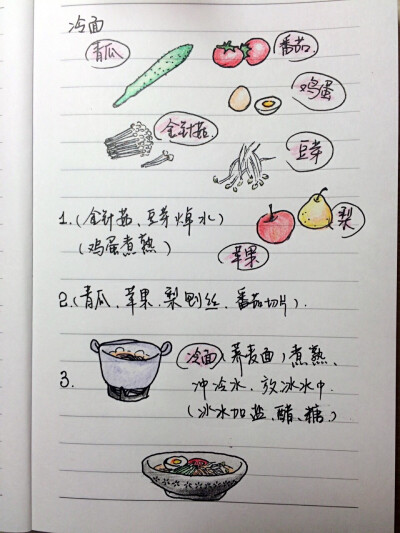 冷面
青瓜
番茄
鸡蛋
金针菇
豆芽
梨
苹果
1.(金针菇、豆芽焯水)
(鸡蛋煮熟)
2.(青瓜、苹果、梨刨丝、番茄切片).
冷面(荞麦面)煮熟、
3.
冲冷水、放冰水中.
(冰水加盐、醋、糖)